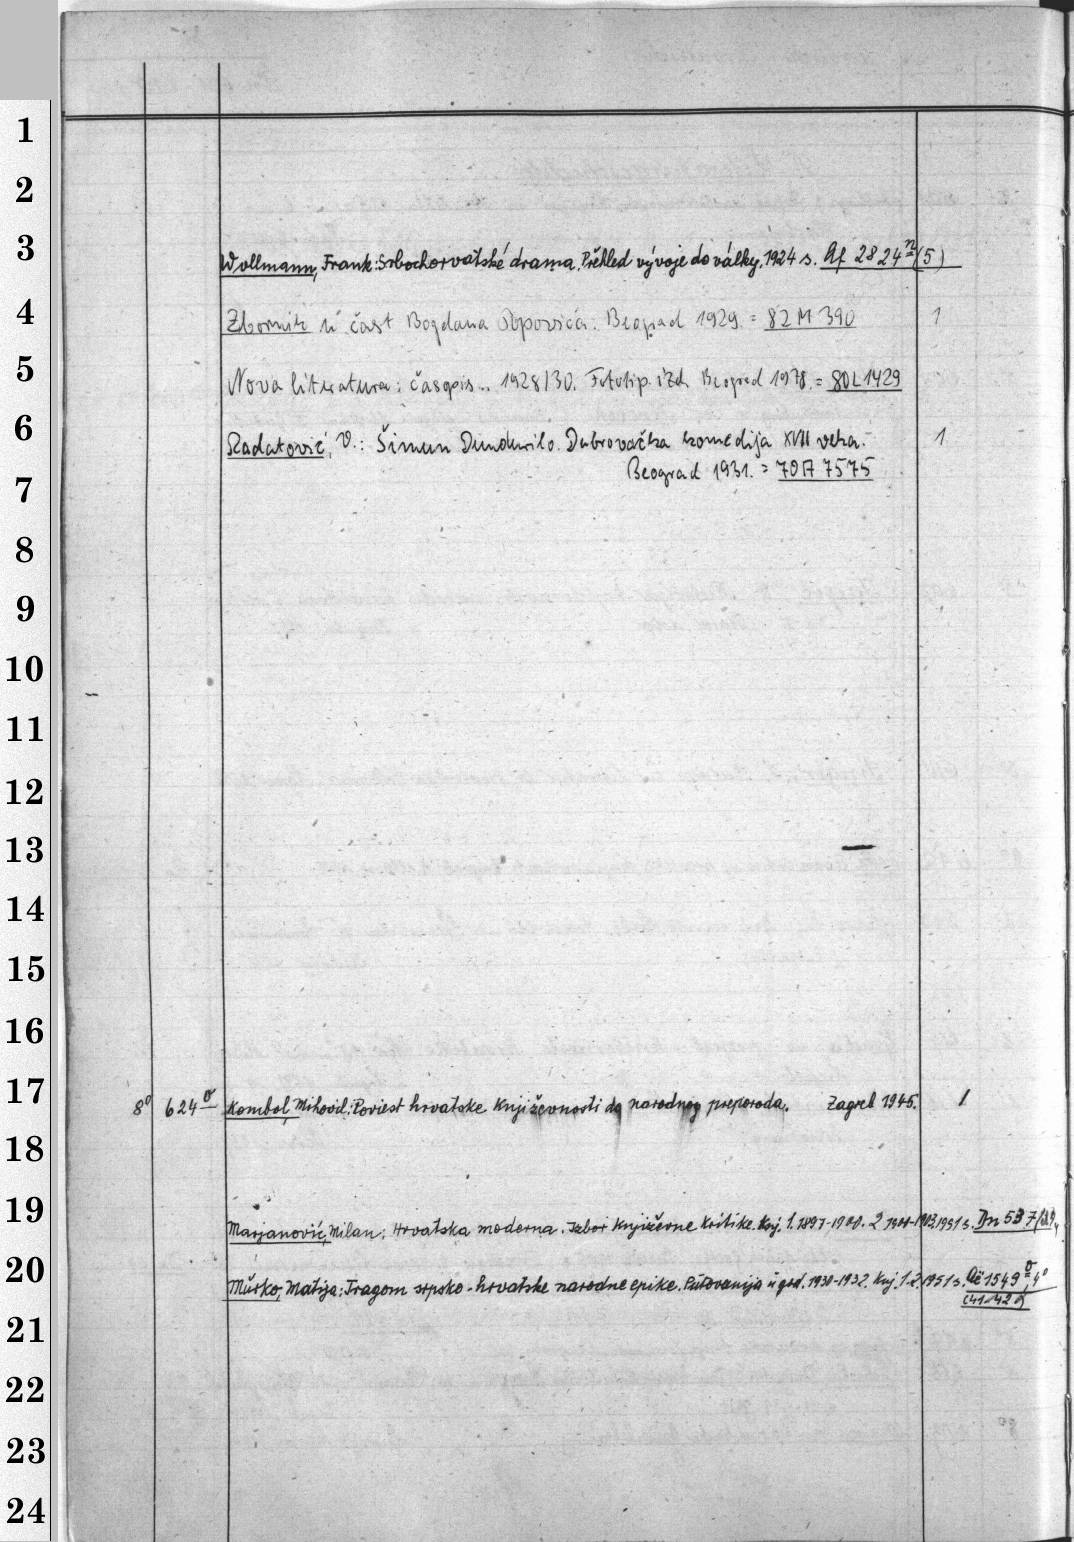 1
2
3
Wollmann, Frank: Srbochorvatské drama. Přehled vývoje do války. 1924 s. Af 2824 n (5)
4
Zbornik u čast Bogdana Popovića. Beograd 1929. = 82 M 390 1
5
Nova literatura: časopis.. 1928/30. Fototip. izd. Beograd 1978. = 80 L 1429
6
Radatović, V.: Šimun Dundurilo. Dubrovačka komedija XVII veka. 1
Beograd 1931. = 70 A 7575
7
8
9
10
11
12
13
14
15
16
17
8° 624 Kombol, Mihovil: Poviest hrvatske književnosti do narodnog preporoda. Zagreb 1945. 1
18
19
Marjanović, Milan: Hrvatska moderna. Izbor književne kritike. Knj. 1. 1897-1900. 2 1901-1903. 1951 s. Dn 537
20
Murko, Matija: Tragom srpsko-hrvatske narodne epike. Putovanija u god. 1930-1932. Knj. 1.2. 1951 s. 1549 4°
(41-42
21
22
23
24